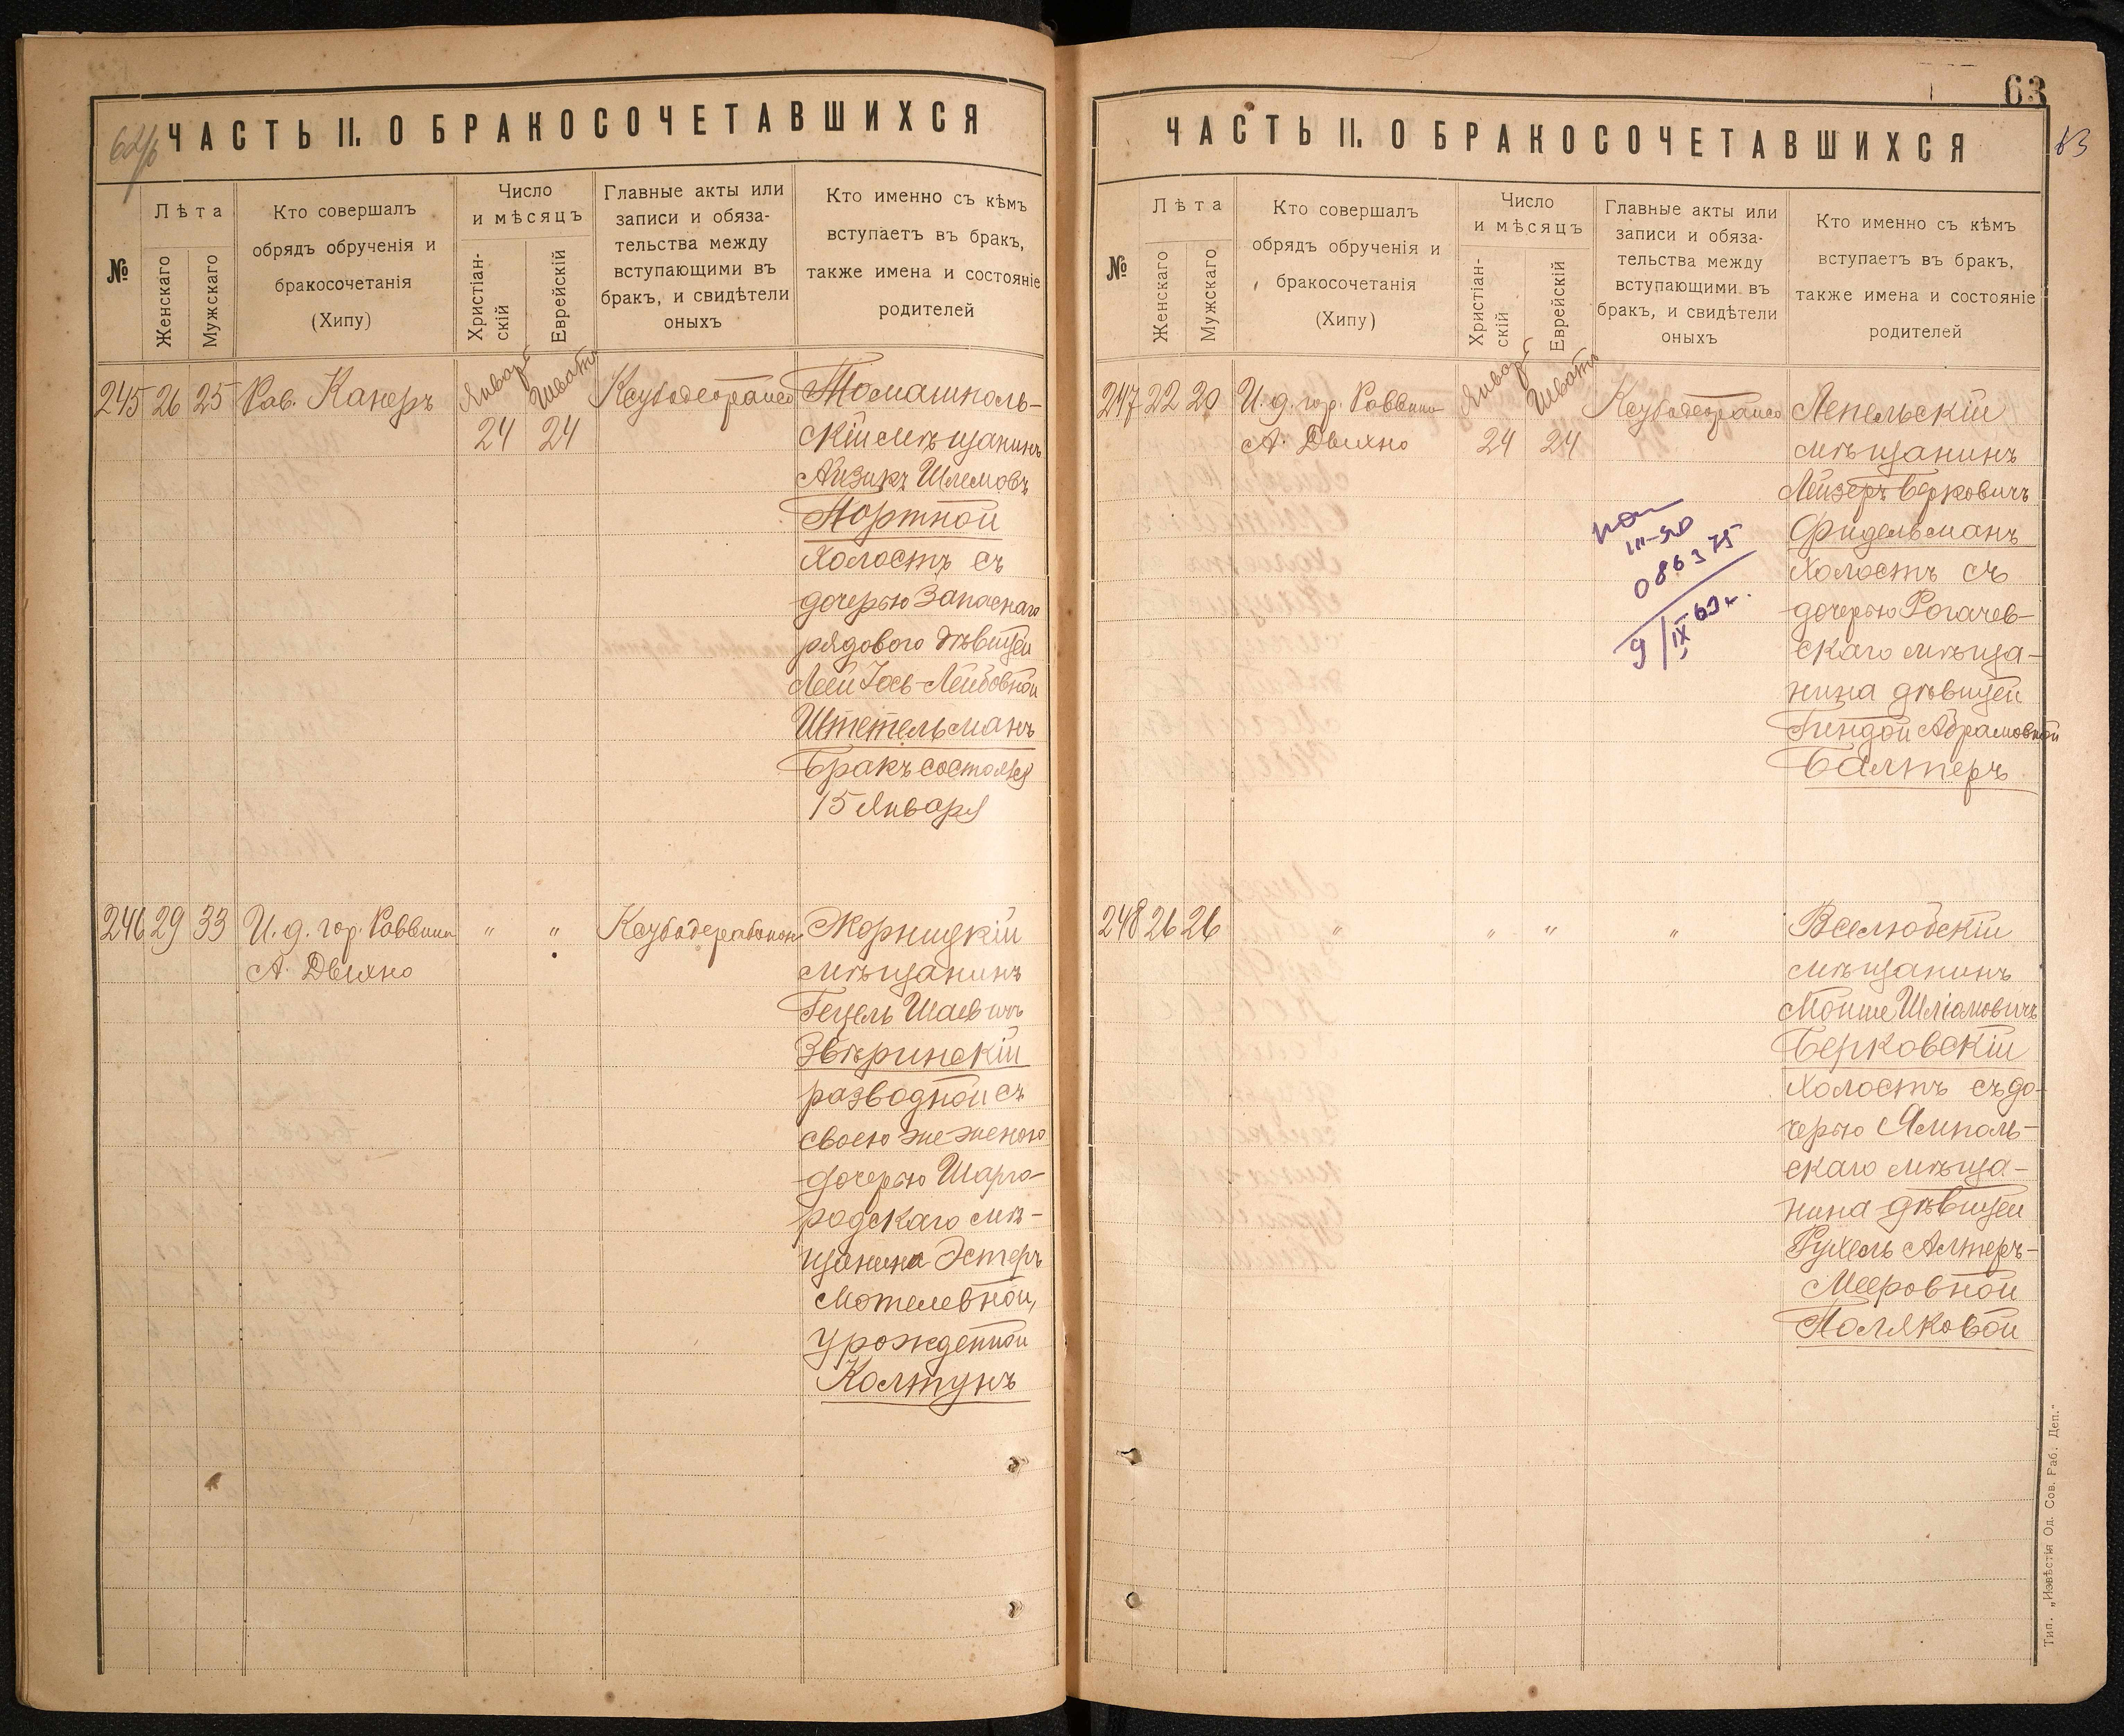 62/б
ЧАСТЬ II. О БРАКОСОЧЕТАВШИХСЯ
№
Лѣта
Женскаго
Мужскаго
Кто совершалъ
обрядъ обрученія и
бракосочетанія
(Хипу)
Число
и мѣсяцъ
Христіан-
скій
Еврейскій
Главные акты или
записи и обяза-
тельства между
вступающими въ
бракъ, и свидѣтели
оныхъ
Кто именно съ кѣмъ
вступаетъ въ бракъ,
также имена и состояніе
родителей
245 26 25 Рав. Канеръ
Январ
24
Шватъ
24
Томашполь-
скій мѣщанинъ
Айзикъ Шлемовъ
Портной
Холостъ съ
дочерью Запаснаго
рядового дѣвицей
Леей Іось-Лейбовной
Штетельманъ
Бракъ состоялся
15 Января
246 29 33 И. д. гор. Раввина
А. Двихно
" "
Жорницкій
мѣщанинъ
Гецель Шаевичъ
Звѣринскій
разводной съ
своею же женою
дочерью Шарго-
родскаго мѣ-
щанина Эстеръ
Мотелевной,
урожденной
Колтунъ
63
63
ЧАСТЬ II. О БРАКОСОЧЕТАВШИХСЯ
№
Лѣта
Женскаго
Мужскаго
Кто совершалъ
обрядъ обрученія и
бракосочетанія
(Хипу)
Число
и мѣсяцъ
Христіан-
скій
Еврейскій
Главные акты или
записи и обяза-
тельства между
вступающими въ
бракъ, и свидѣтели
оныхъ
Кто именно съ кѣмъ
вступаетъ въ бракъ,
также имена и состояніе
родителей
247 22 20 И. д. гор. Раввина
А. Двихно
Январ
24
Шватъ
24
086375
9/IX 63 г.
Лепельскій
мѣщанинъ
Лейзеръ Берковичъ
Фидельманъ
Холостъ съ
дочерью Рогачев-
скаго мѣща-
нина дѣвицей
Гиндой Абрамовной
Балтеръ
248 26 26 " " " "
Вселюбскій
мѣщанинъ
Мойше Шліомовичъ
Берковскій
Холостъ съ до-
черью Ямполь-
скаго мѣща-
нина дѣвицей
Рухель Алтеръ-
Мееровной
Поляковой
Тип. „Извѣстія Од. Сов. Раб. Деп."